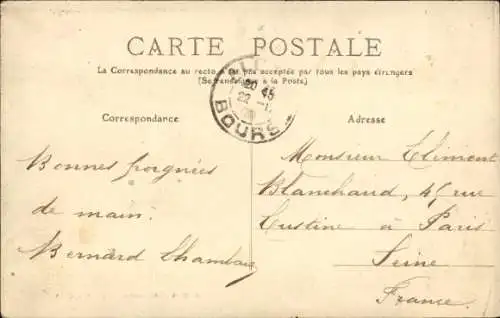 CARTE POSTALE
La Correspondance au recto n'est pas acceptée par tous les pays étrangers
(Se renseigner à la Poste)
20 45
22
BOURS
Correspondance
Adresse
Bonnes poignées
de main.
Bernard
Monsieur Clément
Blanchaud, 45 rue
Custine à Paris
Seine
France.